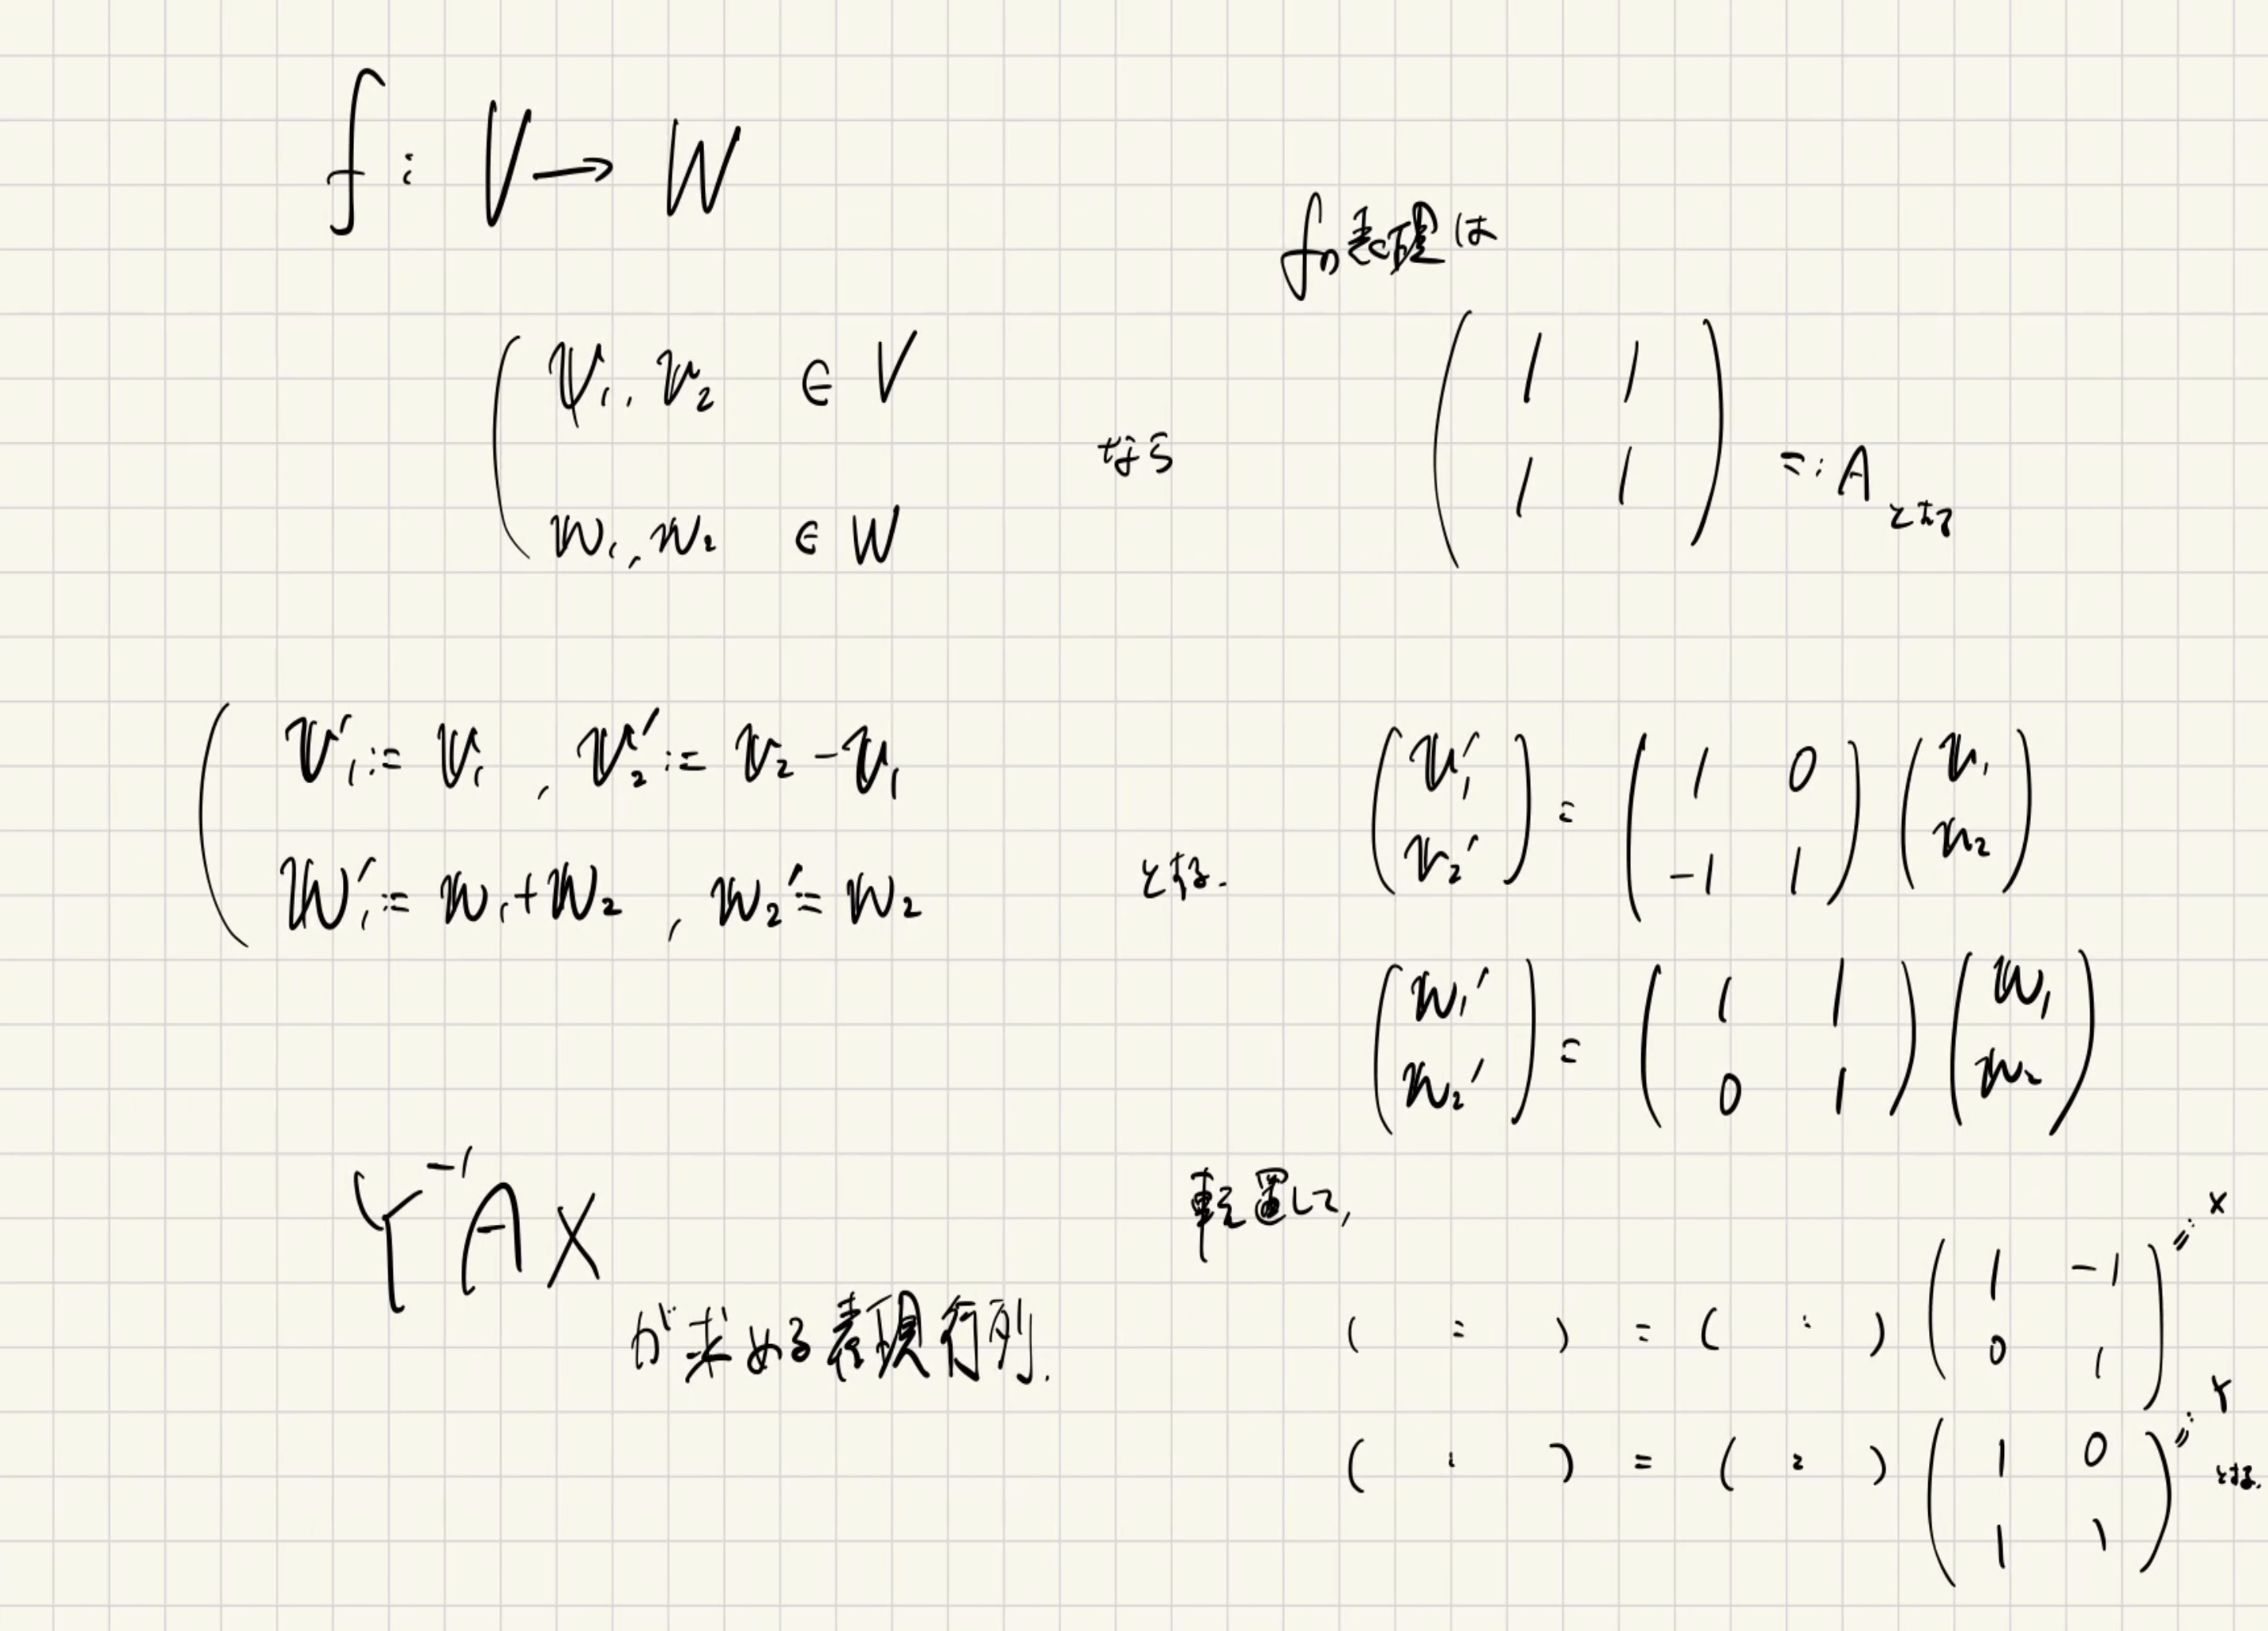 f: V → W
fの表現は
v₁, v₂ ∈ V
w₁, w₂ ∈ W
なら
( 1 1 )
( 1 1 ) =: A とする
v₁′ := v₁, v₂′ := v₂ - v₁
w₁′ := w₁ + w₂, w₂′ = w₂
とする.
( v₁′ ) = ( 1 0 ) ( v₁ )
( v₂′ ) ( -1 1 ) ( v₂ )
( w₁′ ) = ( 1 1 ) ( w₁ )
( w₂′ ) ( 0 1 ) ( w₂ )
転置して,
( : ) = ( : ) ( 1 -1 ) =: X
( 0 1 )
( : ) = ( : ) ( 1 0 ) =: Y
( 1 1 ) とする.
Y⁻¹AX
が求める表現行列.